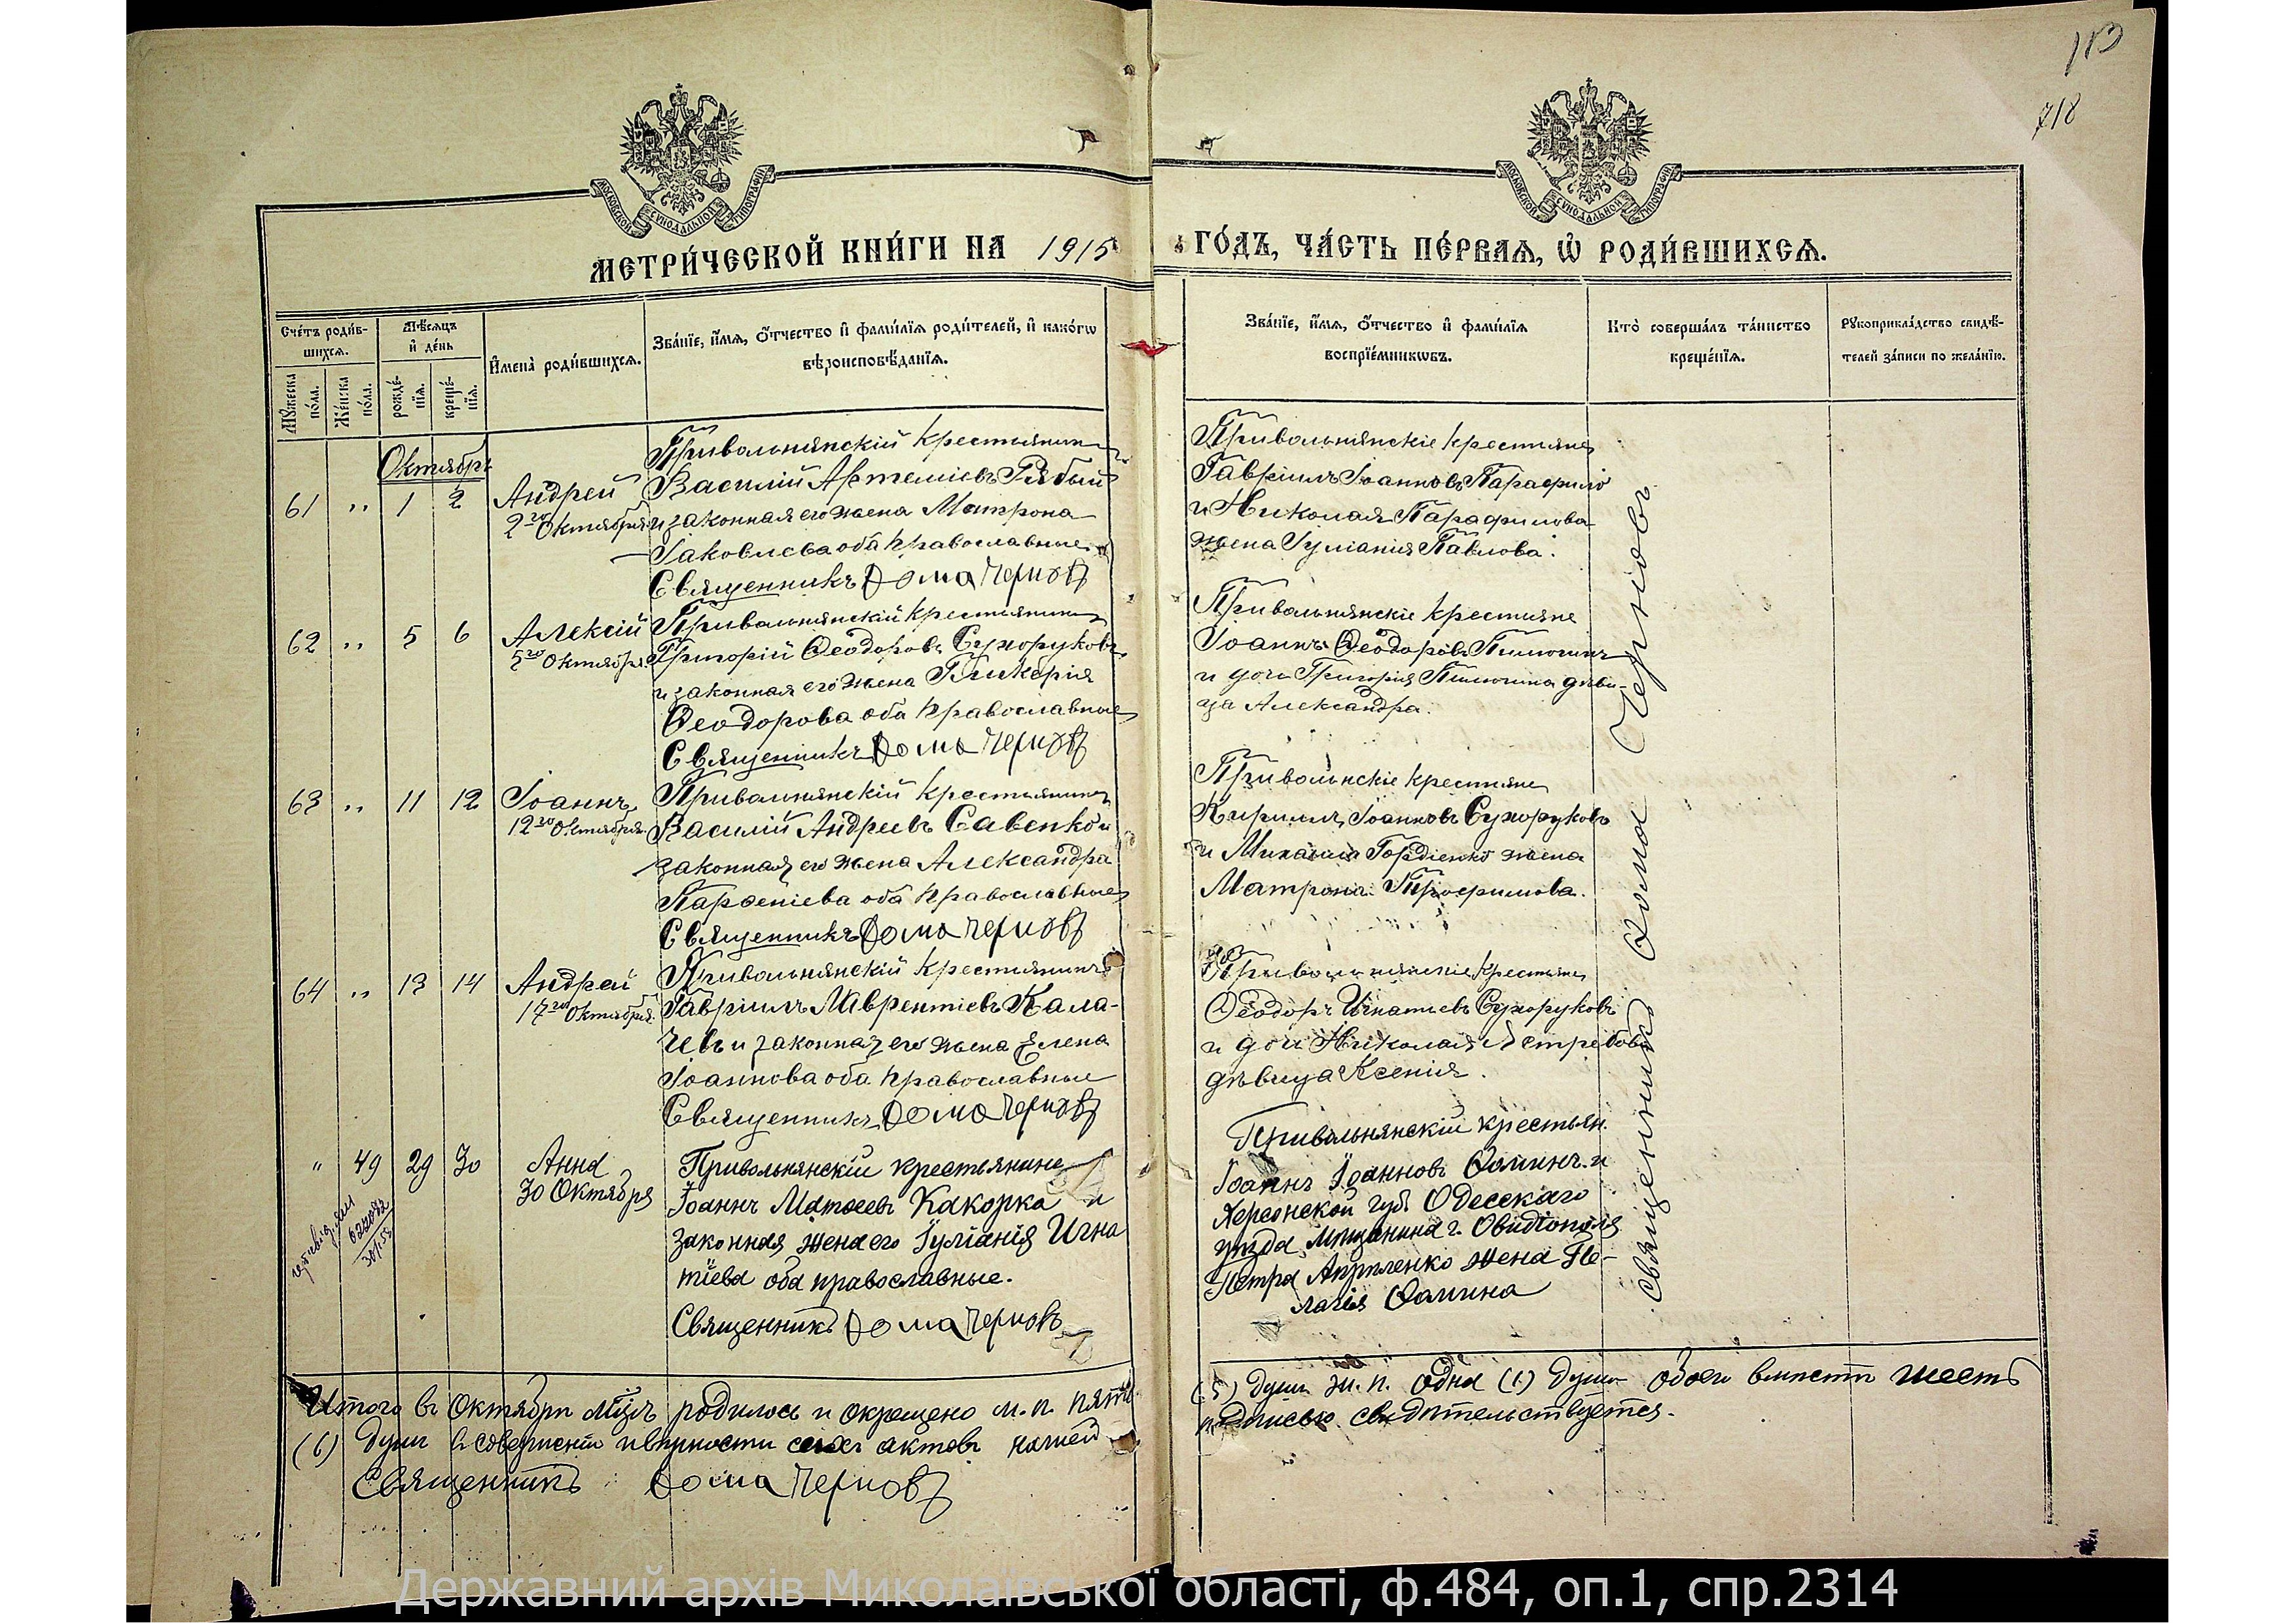 183
718
МОСКОВСКОЙ СѴНОДАЛЬНОЙ ТИПОГРАФІИ
МОСКОВСКОЙ СѴНОДАЛЬНОЙ ТИПОГРАФІИ
МЕТРИ́ЧЕСКОЙ КНИ́ГИ НА 1915 ГО́ДЪ, ЧА́СТЬ ПЕ́РВАѦ, Ѡ РОДИ́ВШИХСѦ.
Сче́тъ роди́в-
шихсѧ.
Мꙋ́жеска по́ла.
Же́нска по́ла.
Мѣ́сѧцъ и де́нь
рожде́-
нїѧ.
креще́-
нїѧ.
И҆мена̀ роди́вшихсѧ.
Зва́нїе, и҆́мѧ, ѻ҆́тчество и҆ фами́лїѧ роди́телей, и҆ како́гѡ
вѣроисповѣ́данїѧ.
Зва́нїе, и҆́мѧ, ѻ҆́тчество и҆ фами́лїѧ
воспрїе́мникѡвъ.
Кто̀ соверша́лъ та́инство
креще́нїѧ.
Рꙋкоприкла́дство свидѣ́-
телей за́писи по жела́нїю.
Октябрь
61 " 1 2
Андрей
2го Октября
Привольнянскій крестьянин
Василій Артеміевъ Рябый
и законная его жена Матрона
Іаковлева оба православные
Священникъ Ѳома Черновъ
Привольнянскіе крестяне
Гавріилъ Іоанновъ Парафило
и Николая Парафилова
жена Іуліанія Павлова.
62 " 5 6
Алексій
5го Октября
Привольнянскій крестьянин
Григорій Ѳеодоровъ Сухоруковъ
и законная его жена Гликерія
Ѳеодорова оба православные
Священникъ Ѳома Черновъ
Привольнянскіе крестяне
Іоаннъ Ѳеодоровъ Пилюгинъ
и дочь Григорія Пилюгина дѣви-
ца Александра.
63 " 11 12
Іоаннъ
12го Октября
Привольнянскій крестьянинъ
Василій Андреевъ Савенко и
законная его жена Александра
Парѳеніева оба православные
Священникъ Ѳома Черновъ
Привольнскіе крестяне
Кириллъ Іоанновъ Сухоруковъ
и Михаила Гордіенко жена
Матрона Трофимова.
64 " 13 14
Андрей
17го Октября
Привольнянскій крестьянинъ
Гавріилъ Лаврентіевъ Кала-
чевъ и законная его жена Елена
Іоаннова оба православные
Священникъ Ѳома Черновъ
Привольнянскіе крестяне
Ѳеодоръ Игнатіевъ Сухоруковъ
и дочь Николая Ястребова
дѣвица Ксенія.
" 49 29 30
Анна
30 Октября
Привольнянскій крестьянинъ
Іоаннъ Матѳеевъ Какорка и
законная жена его Іуліанія Игна
тіева оба православные.
Священникъ Ѳома Черновъ
Привольнянскій крестьян.
Іоаннъ Іоанновъ Ѳоминъ и
Херсонской губ. Одесскаго
уѣзда, мѣщанина г. Овидіополя
Петра Априленко жена Пе-
лагія Ѳомина
Священникъ Ѳома Черновъ
Итого въ Октябрѣ м҃цѣ родилось и окрещено м. п. пять
(5) душъ ж. п. одна (1) душа обоего вмѣстѣ шесть
(6) душъ въ совершеніи и вѣрности сихъ актовъ нашею
подписью свидѣтельствуется.
Священникъ Ѳома Черновъ
Державний архів Миколаївської області, ф.484, оп.1, спр.2314